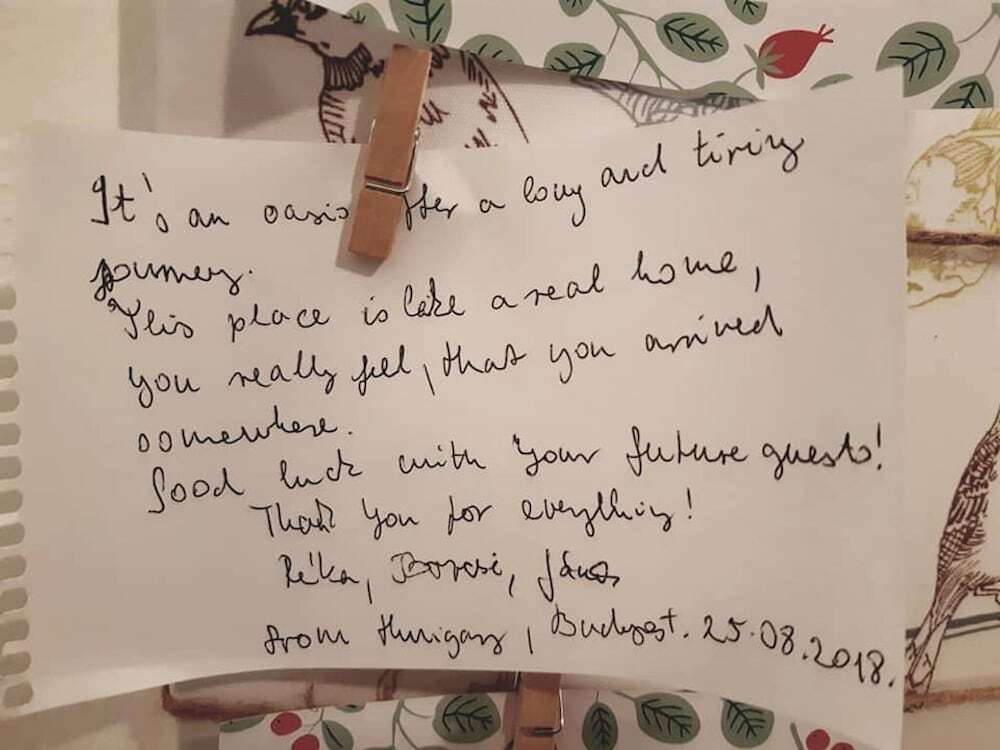 It's an oasis after a long and tiring
journey.
This place is like a real home,
you really feel, that you arrived
somewhere.
Good luck with Your future guests!
Thank You for everything!
Réka, Borcsi, János
from Hungary, Budapest. 25.08.2018.